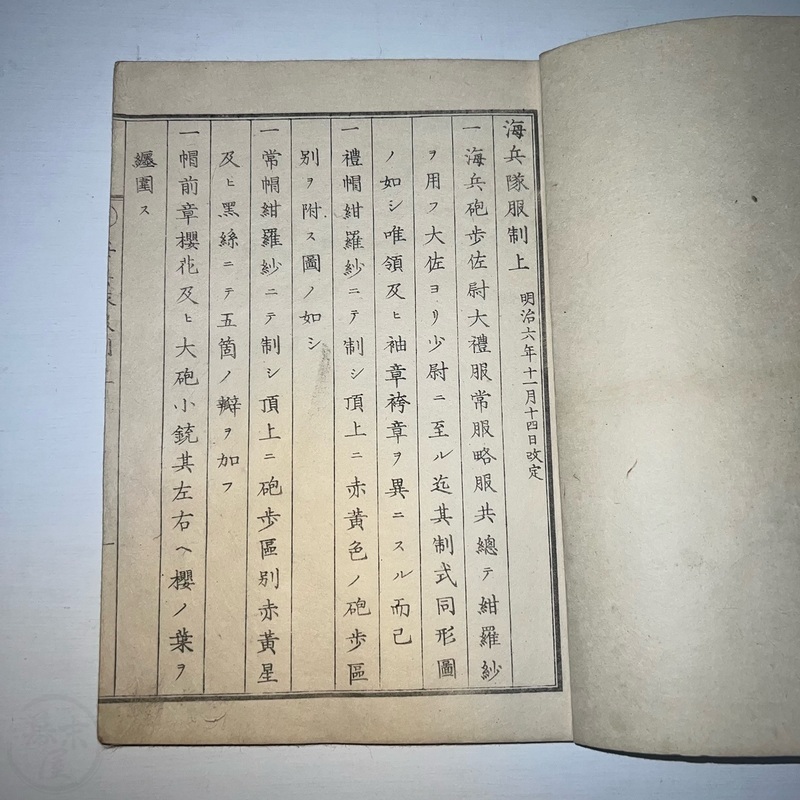 海兵隊服制上 明治六年十一月十四日改定
一海兵砲歩佐尉大禮服常服略服共總テ紺羅紗
ヲ用フ大佐ヨリ少尉ニ至ル迄其制式同形圖
ノ如シ唯領及ヒ袖章袴章ヲ異ニスル而已
一禮帽紺羅紗ニテ制シ頂上ニ赤黄色ノ砲歩區
別ヲ附ス圖ノ如シ
一常帽紺羅紗ニテ制シ頂上ニ砲歩區別赤黄星
及ヒ黑絲ニテ五箇ノ瓣ヲ加フ
一帽前章櫻花及ヒ大砲小銃其左右ヘ櫻ノ葉ヲ
纒圍ス